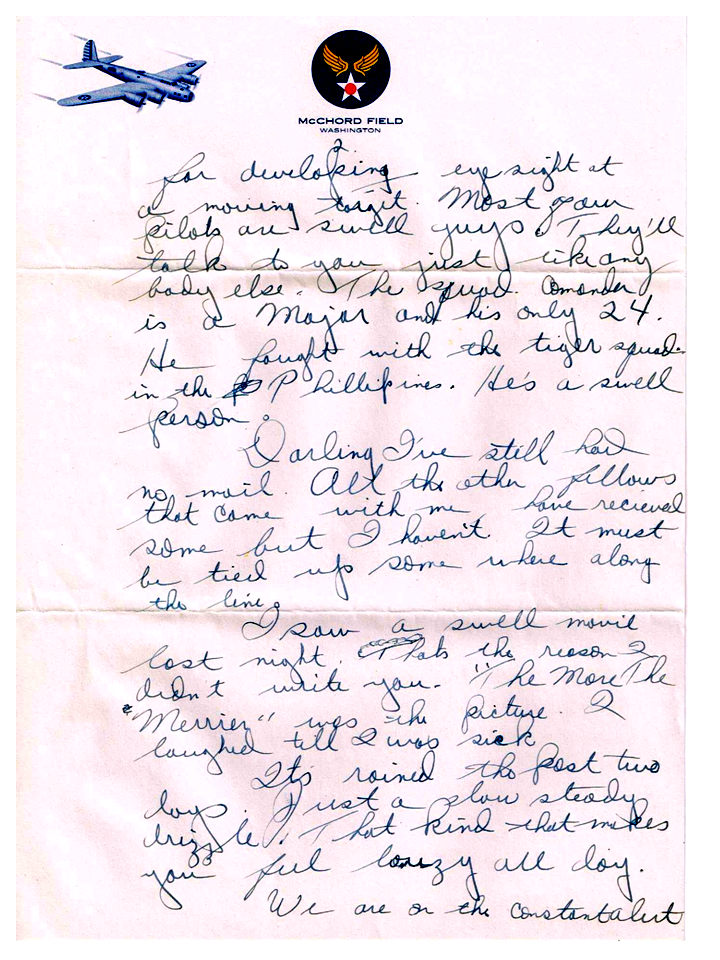 McCHORD FIELD
WASHINGTON
2.
for developing eye sight at
a moving target. Most of our
pilots are swell guys. They'll
talk to you just like any
body else. The squad. comander
is a Major and his only 24.
He fought with the tiger squad.
in the Phillipines. He's a swell
person.
Darling I've still had
no mail. All the other fellows
that came with me, have recieved
some but I haven't. It must
be tied up some where along
the line.
I saw a swell movie
last night. Thats the reason I
didn't write you. "The More The
Merrier" was the picture. I
laughed till I was sick.
Its rained the past two
days. Just a slow steady
drizzle. That kind that makes
you feel lazy all day.
We are on the constant alert